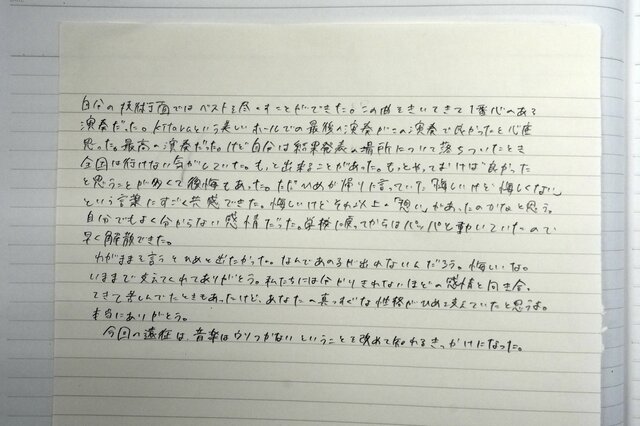 自分の技術面ではベストを尽くすことができた。この曲をきいてきて1番心のある
演奏だった。Kitaraという美しいホールでの最後の演奏がこの演奏で良かったと心底
思った。最高の演奏だった。けど自分は結果発表の場所について落ちついたとき
全国は行けない気がしていた。もっと出来ることがあった。もっとやっておけば良かった
と思うことが多くて後悔もあった。ただひめが帰りに言っていた「悔しいけど悔しくない」
という言葉にすごく共感できた。悔しいけどそれ以上の「想い」があったのかなと思う。
自分でもよく分からない感情だった。学校に戻ってからはパッパと動いていたので
早く解散できた。
わがままを言うとあと出たかった。なんであの3が出れないんだろう。悔しいな。
いままで支えてくれてありがとう。私たちには分かりきれないほどの感情と向き合っ
てきて苦しんでたときもあったけど、あなたの真っすぐな性格がひめを支えていたと思うよ。
本当にありがとう。
今回の遠征は、音楽はウソつかないということを改めて知れるきっかけになった。